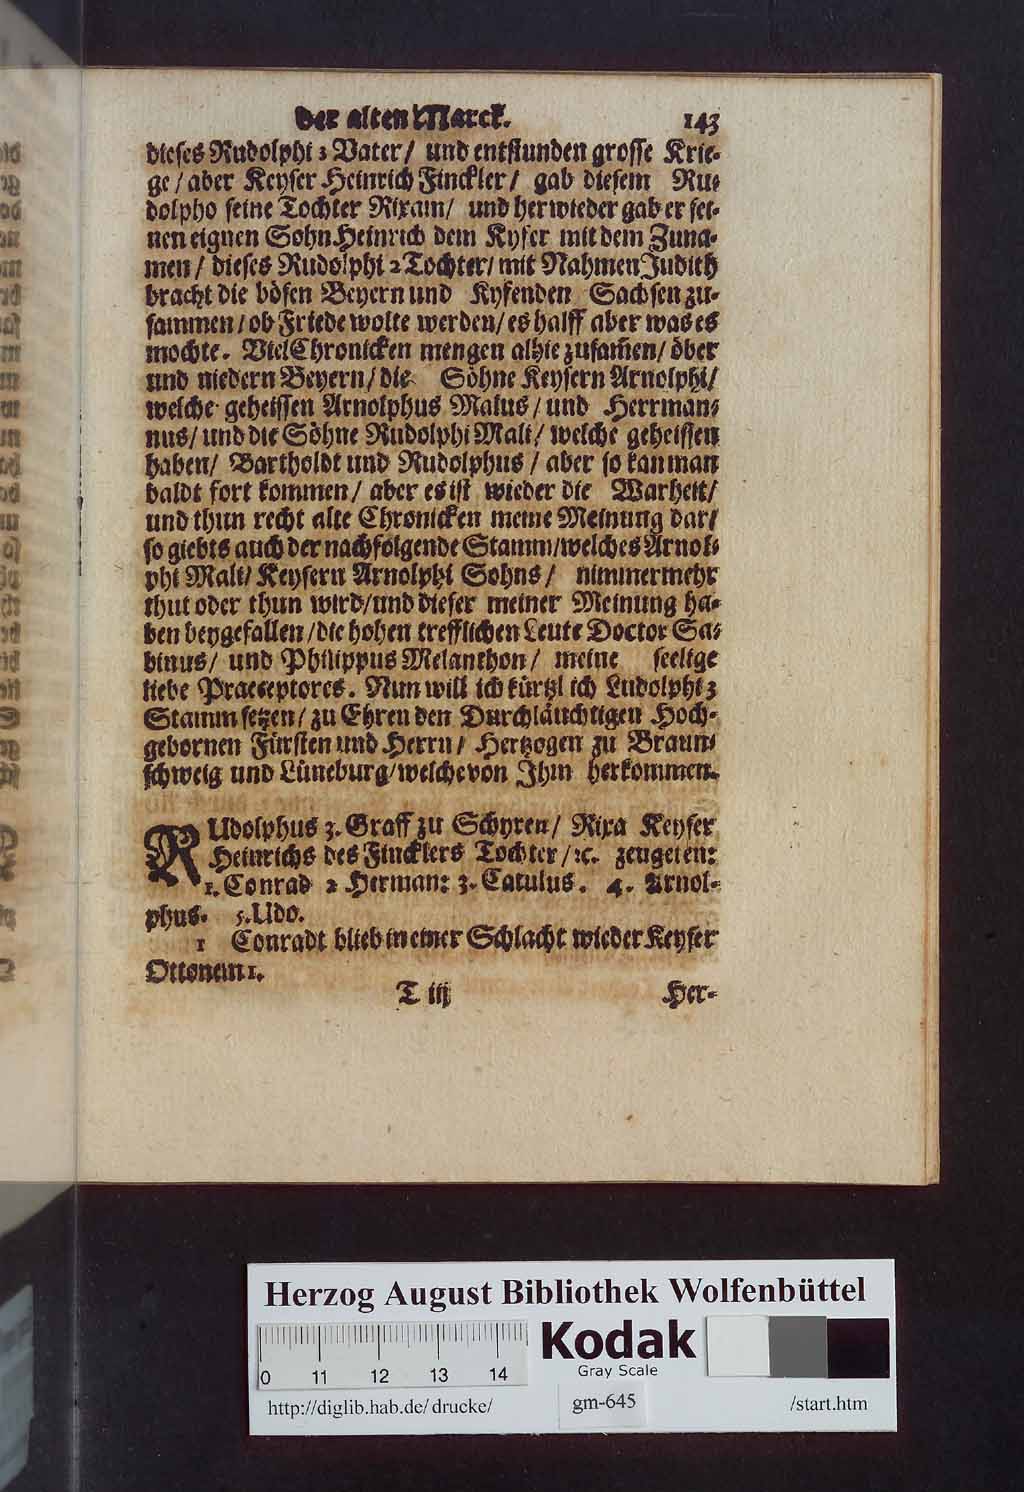 der alten Marck. 143
dieses Rudolphi 3 Vater/ und entstunden grosse Krie-
ge/ aber Keyser Heinrich Finckler/ gab diesem Ru-
dolpho seine Tochter Rixam/ und herwieder gab er sei-
nen eignen Sohn Heinrich dem Kyser mit dem Zuna-
men/ dieses Rudolphi 2 Tochter/ mit Nahmen Judith
bracht die bösen Beyern und Kyfenden Sachsen zu-
sammen/ ob Friede wolte werden/ es halff aber was es
mochte. Viel Chronicken mengen alhie zusam̃en/ öber
und niedern Beyern/ die Söhne Keysern Arnolphi/
welche geheissen Arnolphus Malus/ und Herrman-
nus/ und die Söhne Rudolphi Mali/ welche geheissen
haben/ Bartholdt und Rudolphus/ aber so kan man
baldt fort kommen/ aber es ist wieder die Warheit/
und thun recht alte Chronicken meine Meinung dar/
so giebts auch der nachfolgende Stamm/ welches Arnol-
phi Mali/ Keysern Arnolphi Sohns/ nimmermehr
thut oder thun wird/ und dieser meiner Meinung ha-
ben beygefallen/ die hohen trefflichen Leute Doctor Sa-
binus/ und Philippus Melanthon/ meine seelige
liebe Praeceptores. Nun will ich kürtzl ich Ludolphi 3
Stamm setzen/ zu Ehren den Durchläuchtigen Hoch-
gebornen Fürsten und Herrn/ Hertzogen zu Braun-
schweig und Lüneburg/ welche von Ihm herkommen.
RUdolphus 3. Graff zu Schyren/ Rixa Keyser
Heinrichs des Fincklers Tochter/ ꝛc. zeugeten:
1. Conrad 2 Herman: 3. Catulus. 4. Arnol-
phus. 5. Udo.
1 Conradt blieb in einer Schlacht wieder Keyser
Ottonem 1.
T iij Her-
Herzog August Bibliothek Wolfenbüttel
Kodak
Gray Scale
0 11 12 13 14
http://diglib.hab.de/drucke/ gm-645 /start.htm